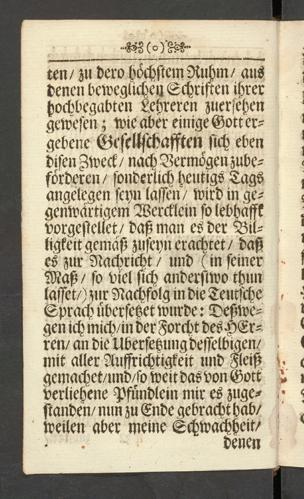 (o)
ten/ zu dero höchstem Ruhm/ aus
denen beweglichen Schriften ihrer
hochbegabten Lehreren zuersehen
gewesen; wie aber einige Gott er-
gebene Gesellschafften sich eben
disen Zweck/ nach Vermögen zube-
förderen/ sonderlich heutigs Tags
angelegen seyn lassen/ wird in ge-
genwärtigem Wercklein so lebhafft
vorgestellet/ daß man es der Bil-
ligkeit gemäß zuseyn erachtet/ daß
es zur Nachricht/ und (in seiner
Maß/ so viel sich anderstwo thun
lasset/) zur Nachfolg in die Teutsche
Sprach übersetzet wurde: Deßwe-
gen ich mich/ in der Forcht des HEr-
ren/ an die Ubersetzung desselbigen/
mit aller Auffrichtigkeit und Fleiß
gemachet/ und/ so weit das von Gott
verliehene Pfündlein mir es zuge-
standen/ nun zu Ende gebracht hab/
weilen aber meine Schwachheit/
denen